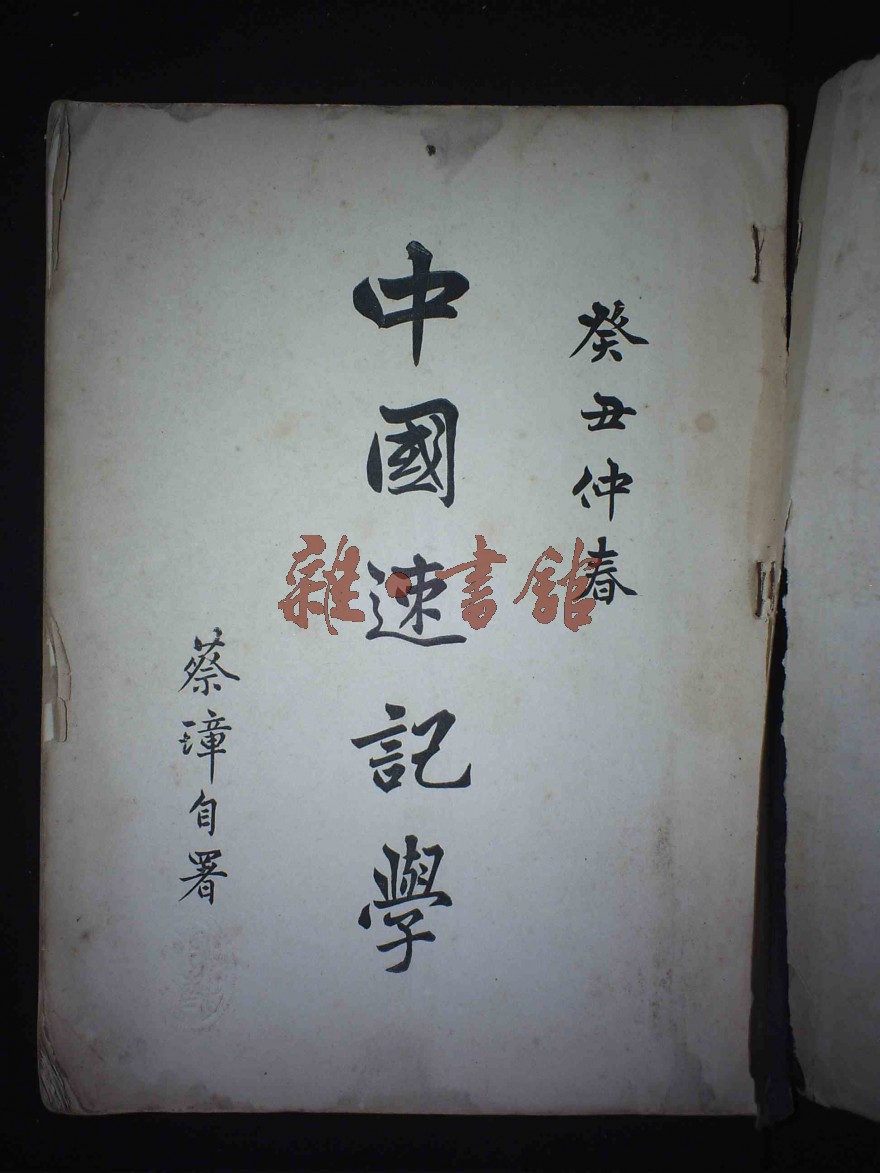 癸丑仲春
中國速記學
蔡璋自署
雜·書館